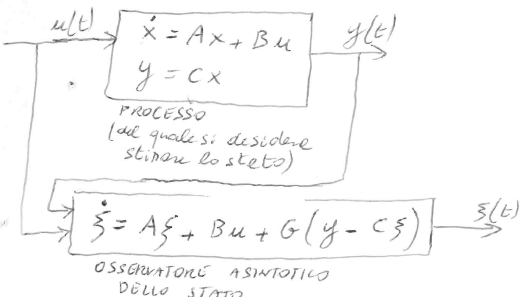 u(t)
ẋ = Ax + Bu
y(t)
y = Cx
PROCESSO
(del quale si desidera
stimare lo stato)
ξ̇ = Aξ + Bu + G(y - Cξ)
ξ(t)
OSSERVATORE ASINTOTICO
DELLO STATO